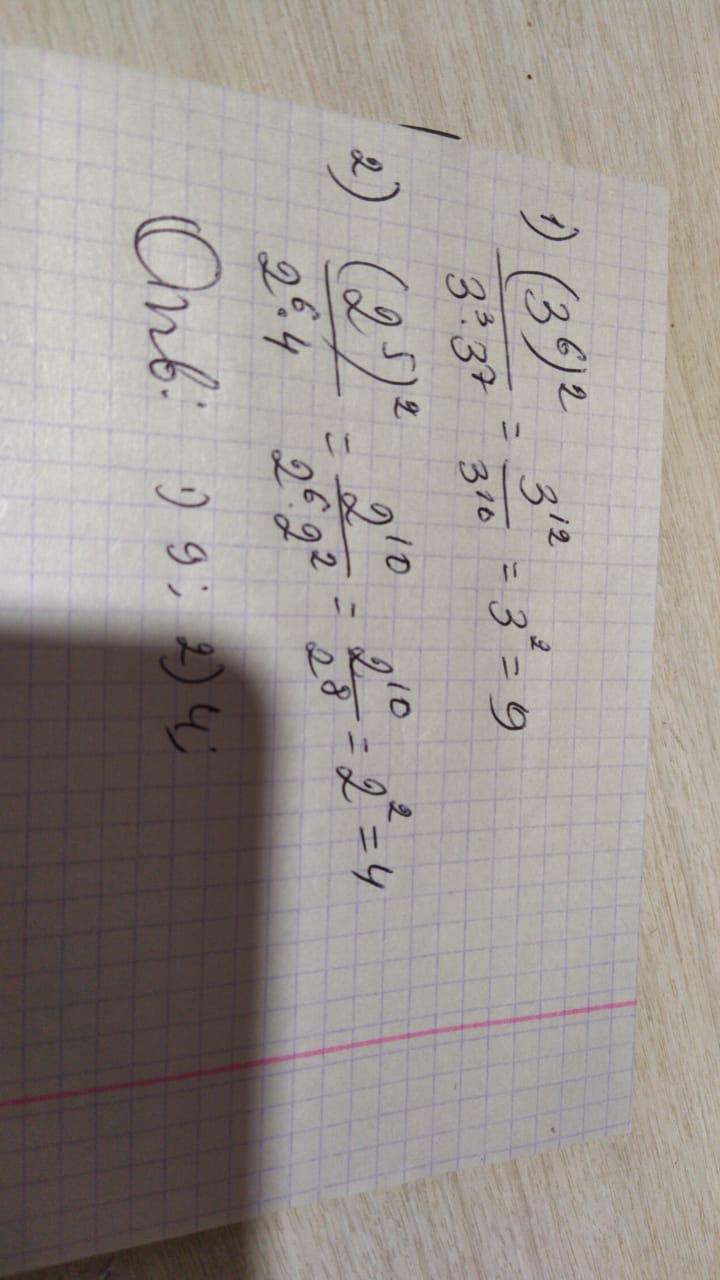 1) (3^6)^2 / 3^3·3^7 = 3^12 / 3^10 = 3^2 = 9
2) (2^5)^2 / 2^6·4 = 2^10 / 2^6·2^2 = 2^10 / 2^8 = 2^2 = 4
Отв: 1) 9; 2) 4;